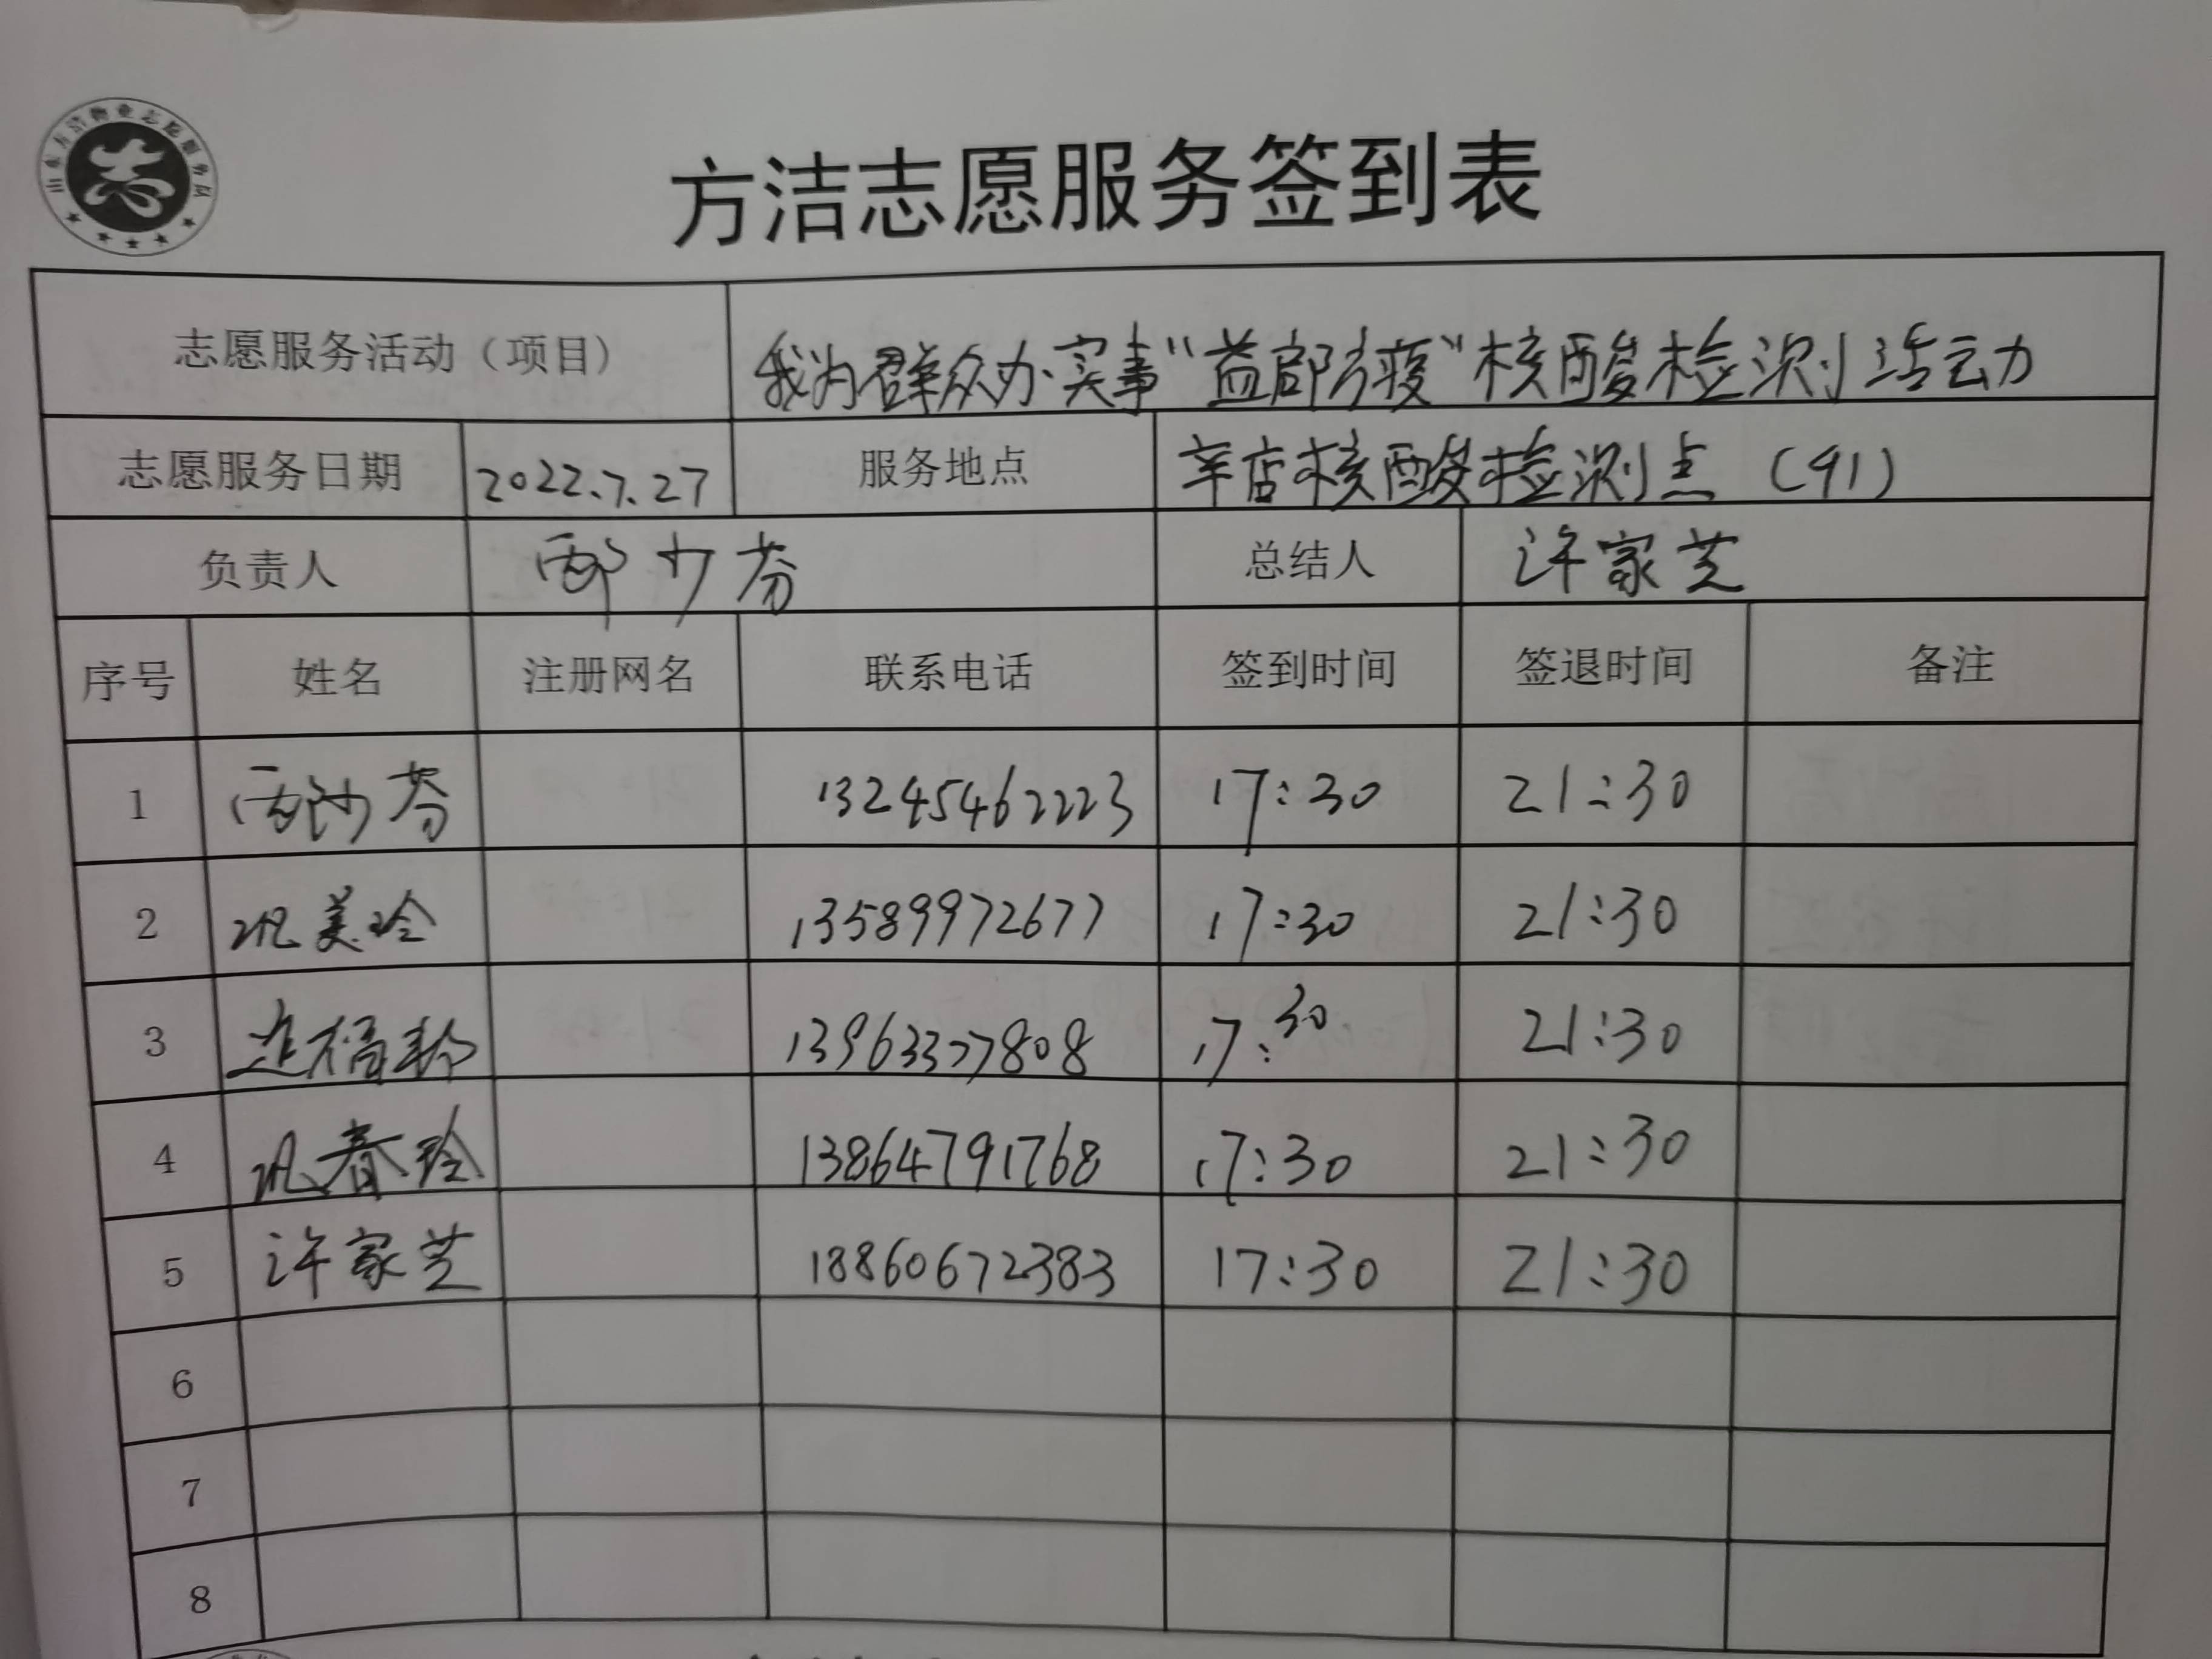 山东方洁物业志愿服务队
方洁志愿服务签到表
志愿服务活动（项目） 我为群众办实事“益起防疫”核酸检测活动
志愿服务日期 2022.7.27 服务地点 辛店核酸检测点（91）
负责人 邴少芬 总结人 许家芝
序号 姓名 注册网名 联系电话 签到时间 签退时间 备注
1 邴少芬 13245462223 17:30 21:30
2 巩美玲 13589972677 17:30 21:30
3 13963377808 17:30 21:30
4 巩春玲 13864791768 17:30 21:30
5 许家芝 18860672383 17:30 21:30
6
7
8